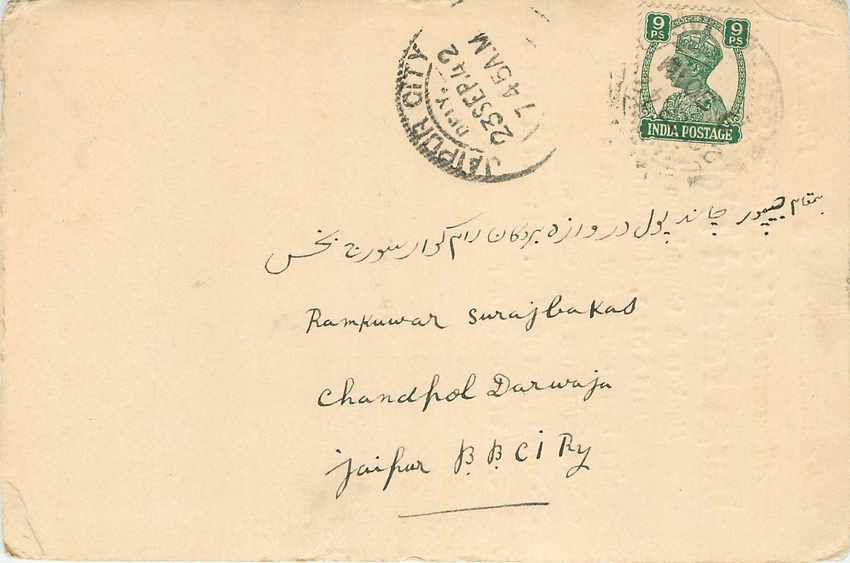 9 PS 9 PS
INDIA POSTAGE
JAIPUR CITY
DELY.
23SEP.42
7 45AM
بمقام جیپور چاند پول دروازہ بردکان رام کنوار سورج بخس
Ramkuwar Surajbakas
Chandpol Darwaja
Jaipur B. B. C I Ry